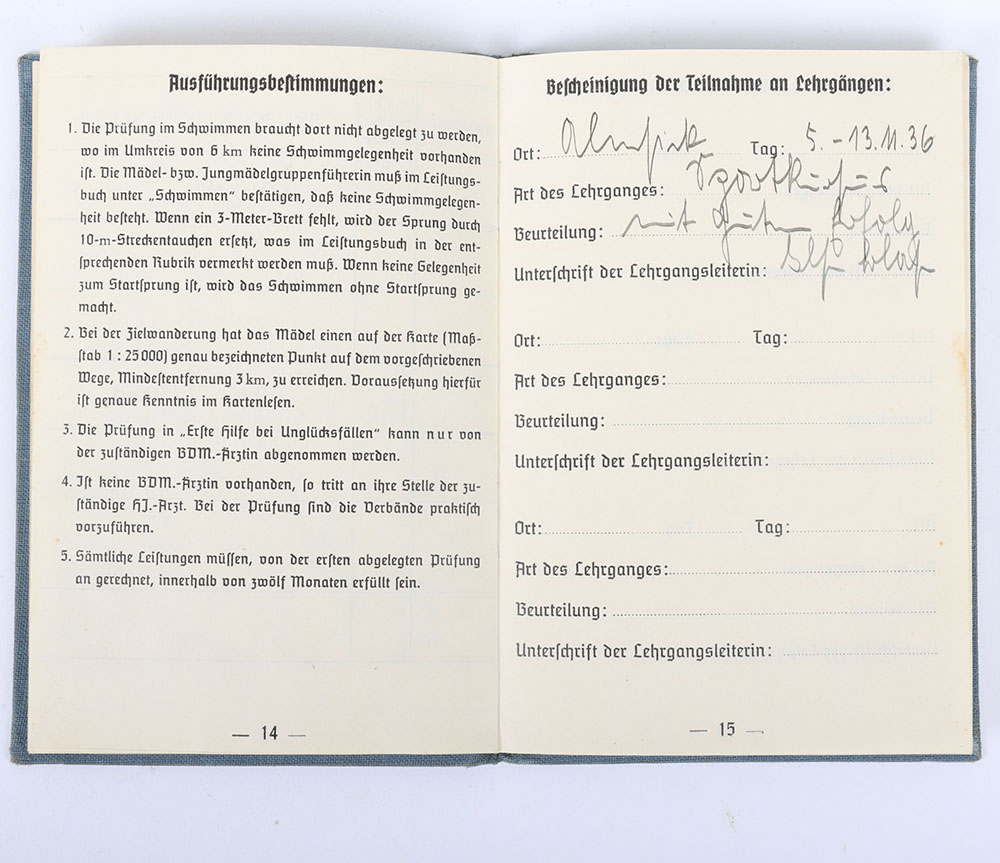 Ausführungsbestimmungen:
1. Die Prüfung im Schwimmen braucht dort nicht abgelegt zu werden,
wo im Umkreis von 6 km keine Schwimmgelegenheit vorhanden
ist. Die Mädel- bzw. Jungmädelgruppenführerin muß im Leistungs-
buch unter „Schwimmen“ bestätigen, daß keine Schwimmgelegen-
heit besteht. Wenn ein 3-Meter-Brett fehlt, wird der Sprung durch
10-m-Streckentauchen ersetzt, was im Leistungsbuch in der ent-
sprechenden Rubrik vermerkt werden muß. Wenn keine Gelegenheit
zum Startsprung ist, wird das Schwimmen ohne Startsprung ge-
macht.
2. Bei der Zielwanderung hat das Mädel einen auf der Karte (Maß-
stab 1 : 25 000) genau bezeichneten Punkt auf dem vorgeschriebenen
Wege, Mindestentfernung 3 km, zu erreichen. Voraussetzung hierfür
ist genaue Kenntnis im Kartenlesen.
3. Die Prüfung in „Erste Hilfe bei Unglücksfällen“ kann nur von
der zuständigen BDM.-Ärztin abgenommen werden.
4. Ist keine BDM.-Ärztin vorhanden, so tritt an ihre Stelle der zu-
ständige HJ.-Arzt. Bei der Prüfung sind die Verbände praktisch
vorzuführen.
5. Sämtliche Leistungen müssen, von der ersten abgelegten Prüfung
an gerechnet, innerhalb von zwölf Monaten erfüllt sein.
— 14 —
Bescheinigung der Teilnahme an Lehrgängen:
Ort: Tag: 5. - 13.11.36
Art des Lehrganges: Sportkursus
Beurteilung: mit gutem Erfolg
Unterschrift der Lehrgangsleiterin:
Ort: Tag:
Art des Lehrganges:
Beurteilung:
Unterschrift der Lehrgangsleiterin:
Ort: Tag:
Art des Lehrganges:
Beurteilung:
Unterschrift der Lehrgangsleiterin:
— 15 —